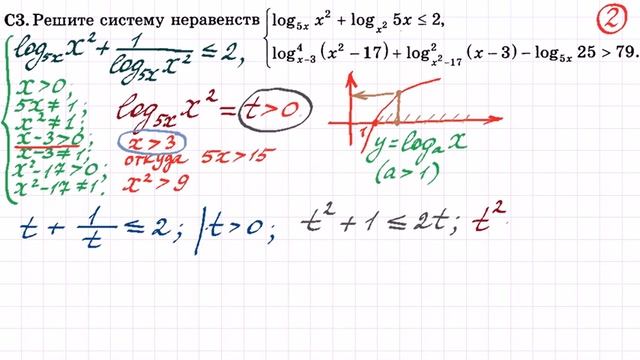 С3. Решите систему неравенств { log₅ₓ x² + logₓ² 5x ≤ 2,
log⁴ₓ₋₃ (x² − 17) + log²ₓ²₋₁₇ (x − 3) − log₅ₓ 25 > 79.
2
log₅ₓ x² + 1/log₅ₓ x² ≤ 2,
x > 0;
5x ≠ 1;
x² ≠ 1;
x − 3 > 0;
x − 3 ≠ 1;
x² − 17 > 0;
x² − 17 ≠ 1.
log₅ₓ x² = t > 0
x > 3
откуда 5x > 15
x² > 9
1
y = logₐ x
(a > 1)
t + 1/t ≤ 2; | t > 0; t² + 1 ≤ 2t; t²